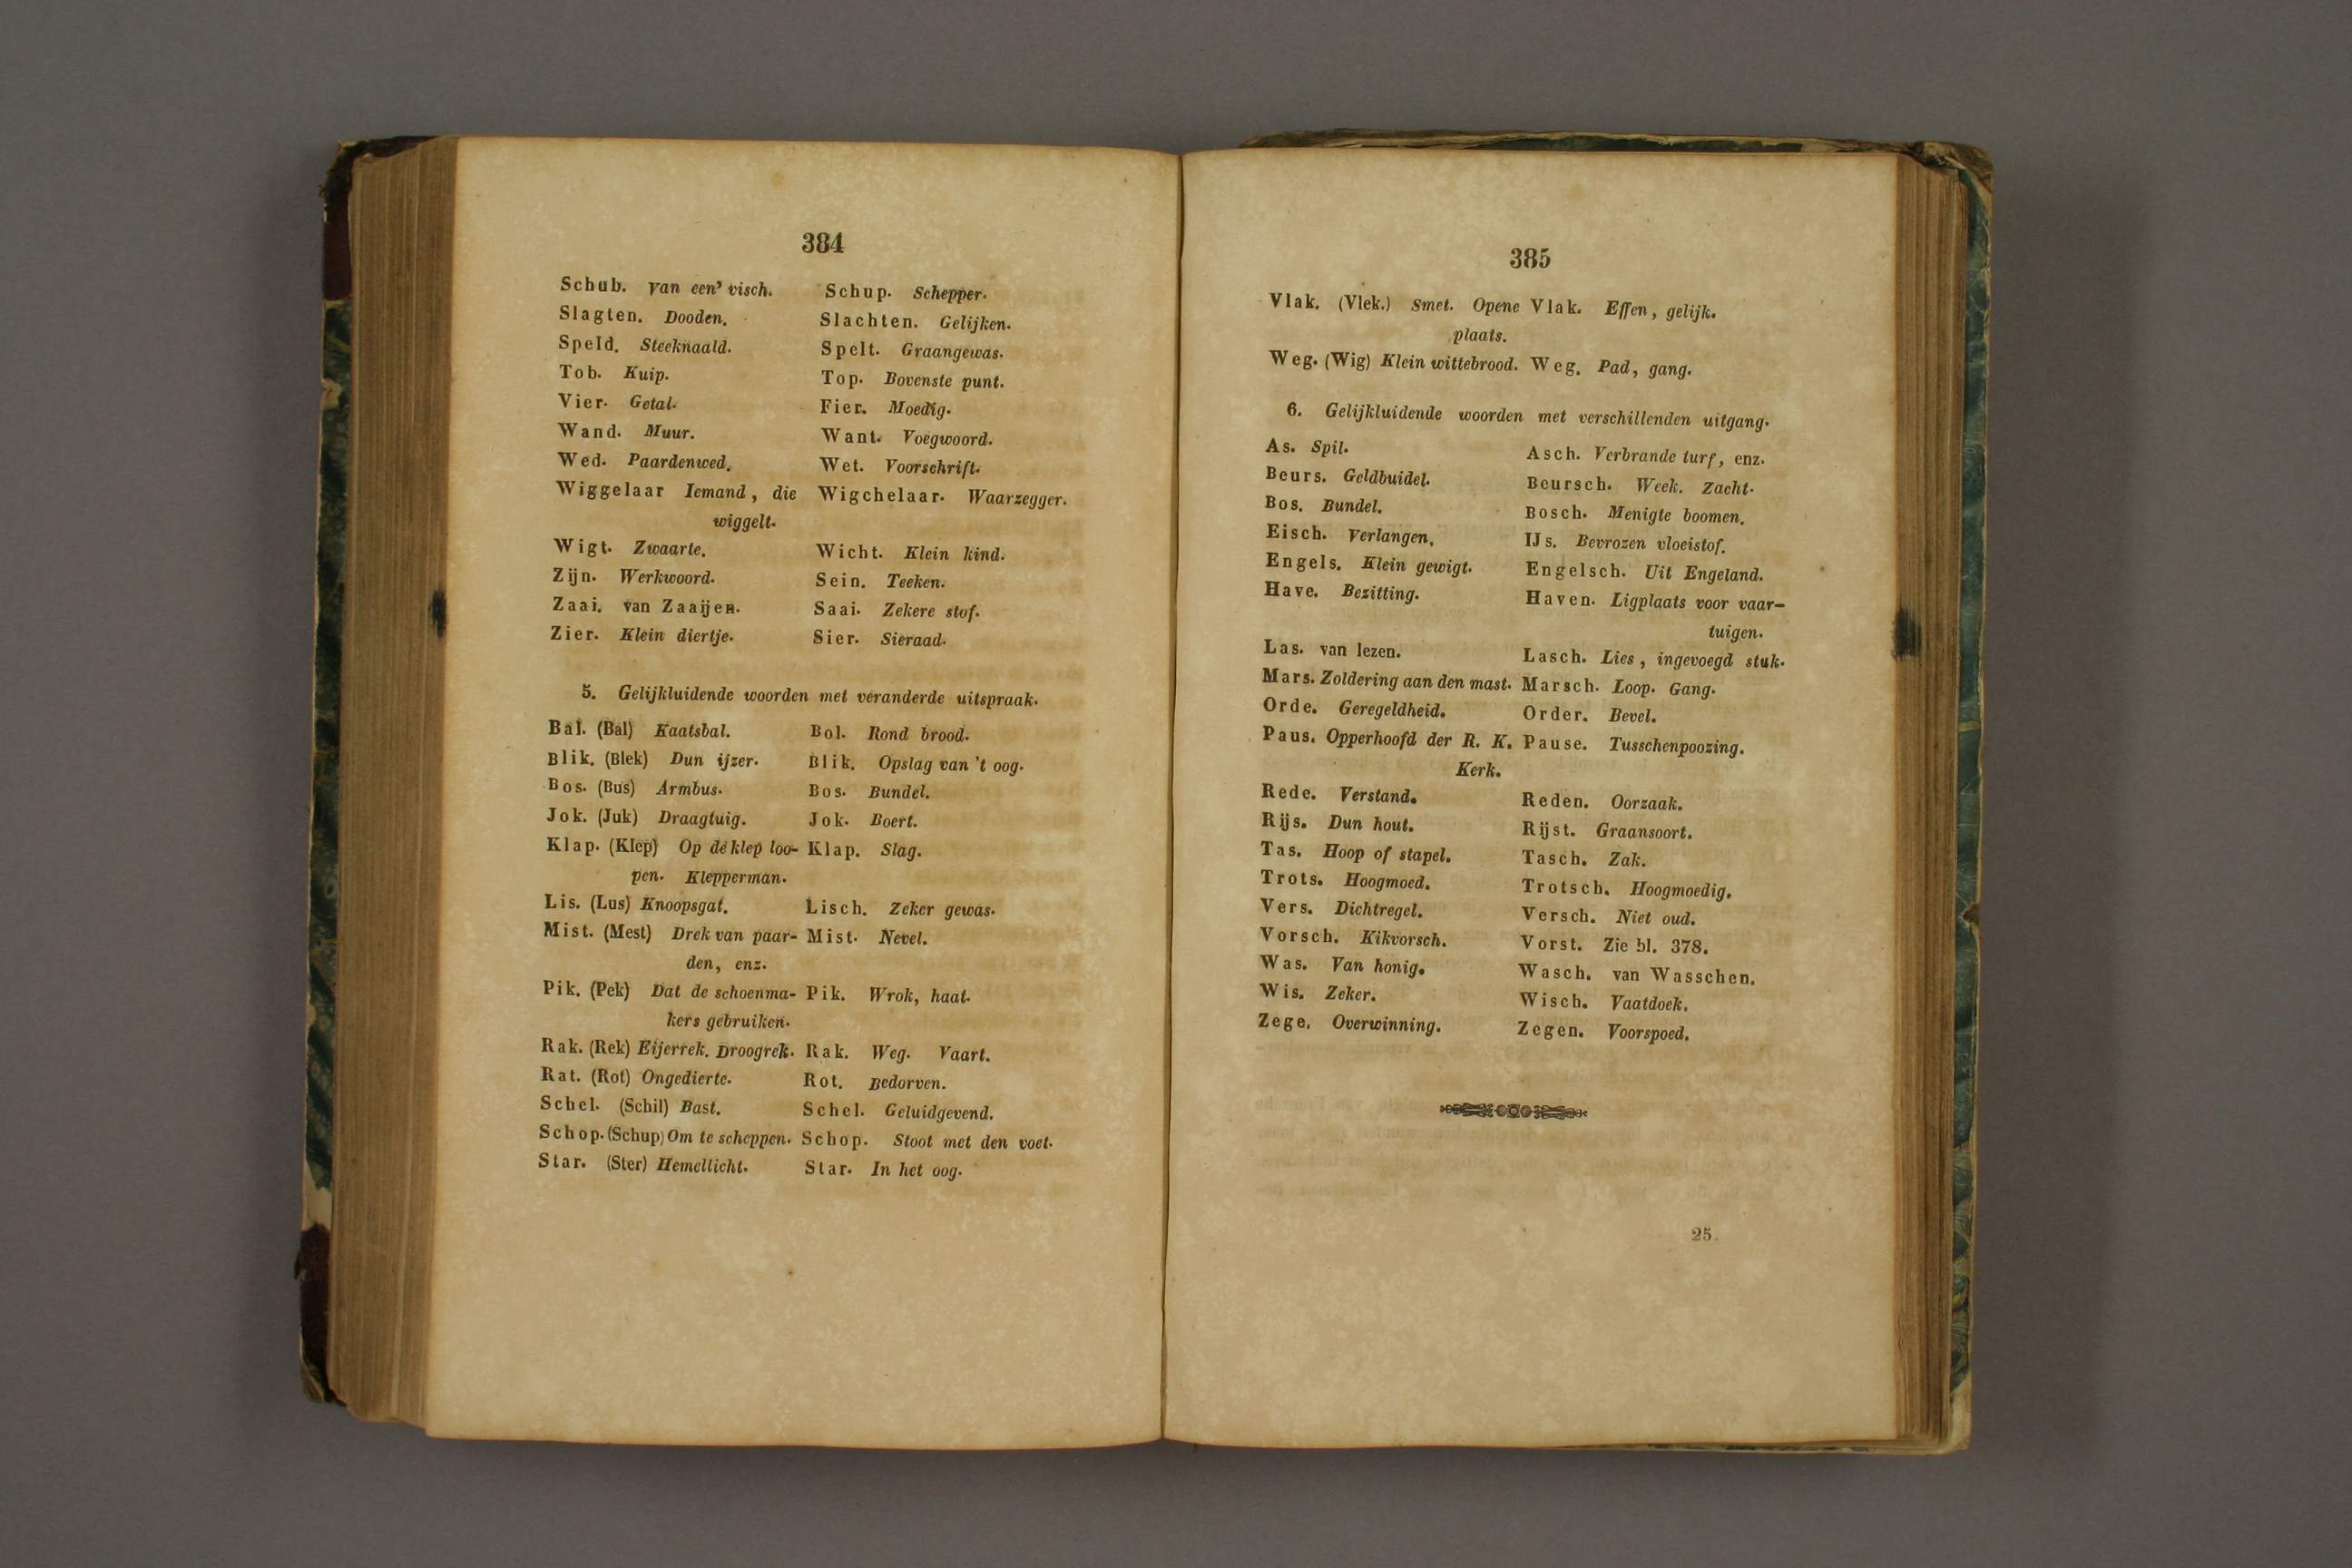 384
Schub. Van een' visch. Schup. Schepper.
Slagten. Dooden. Slachten. Gelijken.
Speld. Steeknaald. Spelt. Graangewas.
Tob. Kuip. Top. Bovenste punt.
Vier. Getal. Fier. Moedig.
Wand. Muur. Want. Voegwoord.
Wed. Paardenwed. Wet. Voorschrift.
Wiggelaar Iemand, die Wigchelaar. Waarzegger.
wiggelt.
Wigt. Zwaarte. Wicht. Klein kind.
Zijn. Werkwoord. Sein. Teeken.
Zaai. van Zaaijen. Saai. Zekere stof.
Zier. Klein diertje. Sier. Sieraad.
5. Gelijkluidende woorden met veranderde uitspraak.
Bal. (Bal) Kaatsbal. Bol. Rond brood.
Blik. (Blek) Dun ijzer. Blik. Opslag van 't oog.
Bos. (Bus) Armbus. Bos. Bundel.
Jok. (Juk) Draagtuig. Jok. Boert.
Klap. (Klep) Op de klep loo- Klap. Slag.
pen. Klepperman.
Lis. (Lus) Knoopsgat. Lisch. Zeker gewas.
Mist. (Mest) Drek van paar- Mist. Nevel.
den, enz.
Pik. (Pek) Dat de schoenma- Pik. Wrok, haat.
kers gebruiken.
Rak. (Rek) Eijerrek. Droogrek. Rak. Weg. Vaart.
Rat. (Rot) Ongedierte. Rot. Bedorven.
Schel. (Schil) Bast. Schel. Geluidgevend.
Schop. (Schup) Om te scheppen. Schop. Stoot met den voet.
Star. (Ster) Hemellicht. Star. In het oog.
385
Vlak. (Vlek.) Smet. Opene Vlak. Effen, gelijk.
plaats.
Weg. (Wig) Klein wittebrood. Weg. Pad, gang.
6. Gelijkluidende woorden met verschillenden uitgang.
As. Spil. Asch. Verbrande turf, enz.
Beurs. Geldbuidel. Beursch. Week. Zacht.
Bos. Bundel. Bosch. Menigte boomen.
Eisch. Verlangen. IJs. Bevrozen vloeistof.
Engels. Klein gewigt. Engelsch. Uit Engeland.
Have. Bezitting. Haven. Ligplaats voor vaar-
tuigen.
Las. van lezen. Lasch. Lies, ingevoegd stuk.
Mars. Zoldering aan den mast. Marsch. Loop. Gang.
Orde. Geregeldheid. Order. Bevel.
Paus. Opperhoofd der R. K. Pause. Tusschenpoozing.
Kerk.
Rede. Verstand. Reden. Oorzaak.
Rijs. Dun hout. Rijst. Graansoort.
Tas. Hoop of stapel. Tasch. Zak.
Trots. Hoogmoed. Trotsch. Hoogmoedig.
Vers. Dichtregel. Versch. Niet oud.
Vorsch. Kikvorsch. Vorst. Zie bl. 378.
Was. Van honig. Wasch. van Wasschen.
Wis. Zeker. Wisch. Vaatdoek.
Zege. Overwinning. Zegen. Voorspoed.
25